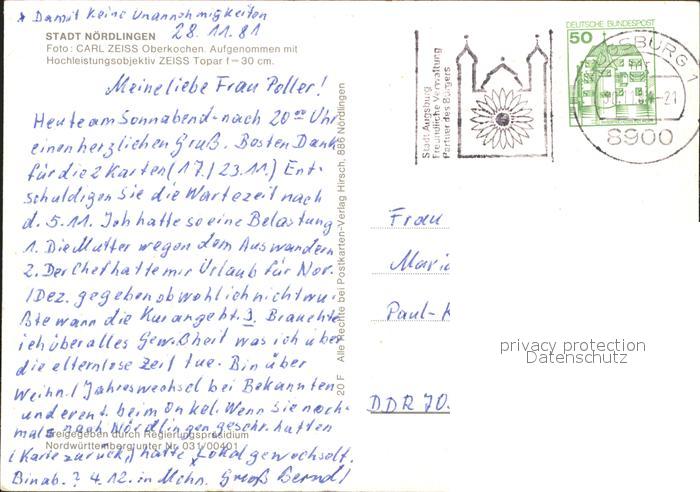 * Damit keine Unannehmigkeiten
28.11.81
STADT NÖRDLINGEN
Foto: CARL ZEISS Oberkochen. Aufgenommen mit
Hochleistungsobjektiv ZEISS Topar f=30 cm.
Meine liebe Frau Poller!
Heute am Sonnabend nach 20⁰⁰ Uhr
einen herzlichen Gruß. Besten Dank
für die 2 Karten (17./23.11.) Ent-
schuldigen Sie die Wartezeit nach
d. 5.11. Ich hatte so eine Belastung
1. Die Mutter wegen dem Auswandern
2. Der Chef hatte mir Urlaub für Nov.
/Dez. gegeben obwohl ich nicht wu-
ßte wann die Kur angeht. 3. Brauchte
ich über alles Gewißheit was ich über
die elternlose Zeit tue. Bin über
Weihn./Jahreswechsel bei Bekannten
und ev. beim Onkel. Wenn sie noch-
mals nach Nördlingen geschr. hatten
Freigegeben durch Regierungspräsidium
Nordwürttemberg unter Nr. 031/00401
(Karte zurück) hatte Lokal gewechselt.
Bin ab ? 4.12. in Mchn. Gruß Bernd
20 F Alle Rechte bei Postkarten-Verlag Hirsch, 885 Nördlingen
Stadt Augsburg
Freundliche Verwaltung
Partner des Bürgers
DEUTSCHE BUNDESPOST
50
AUGSBURG 1
-21
8900
Frau
Mari
Paul-
DDR 70
privacy protection
Datenschutz